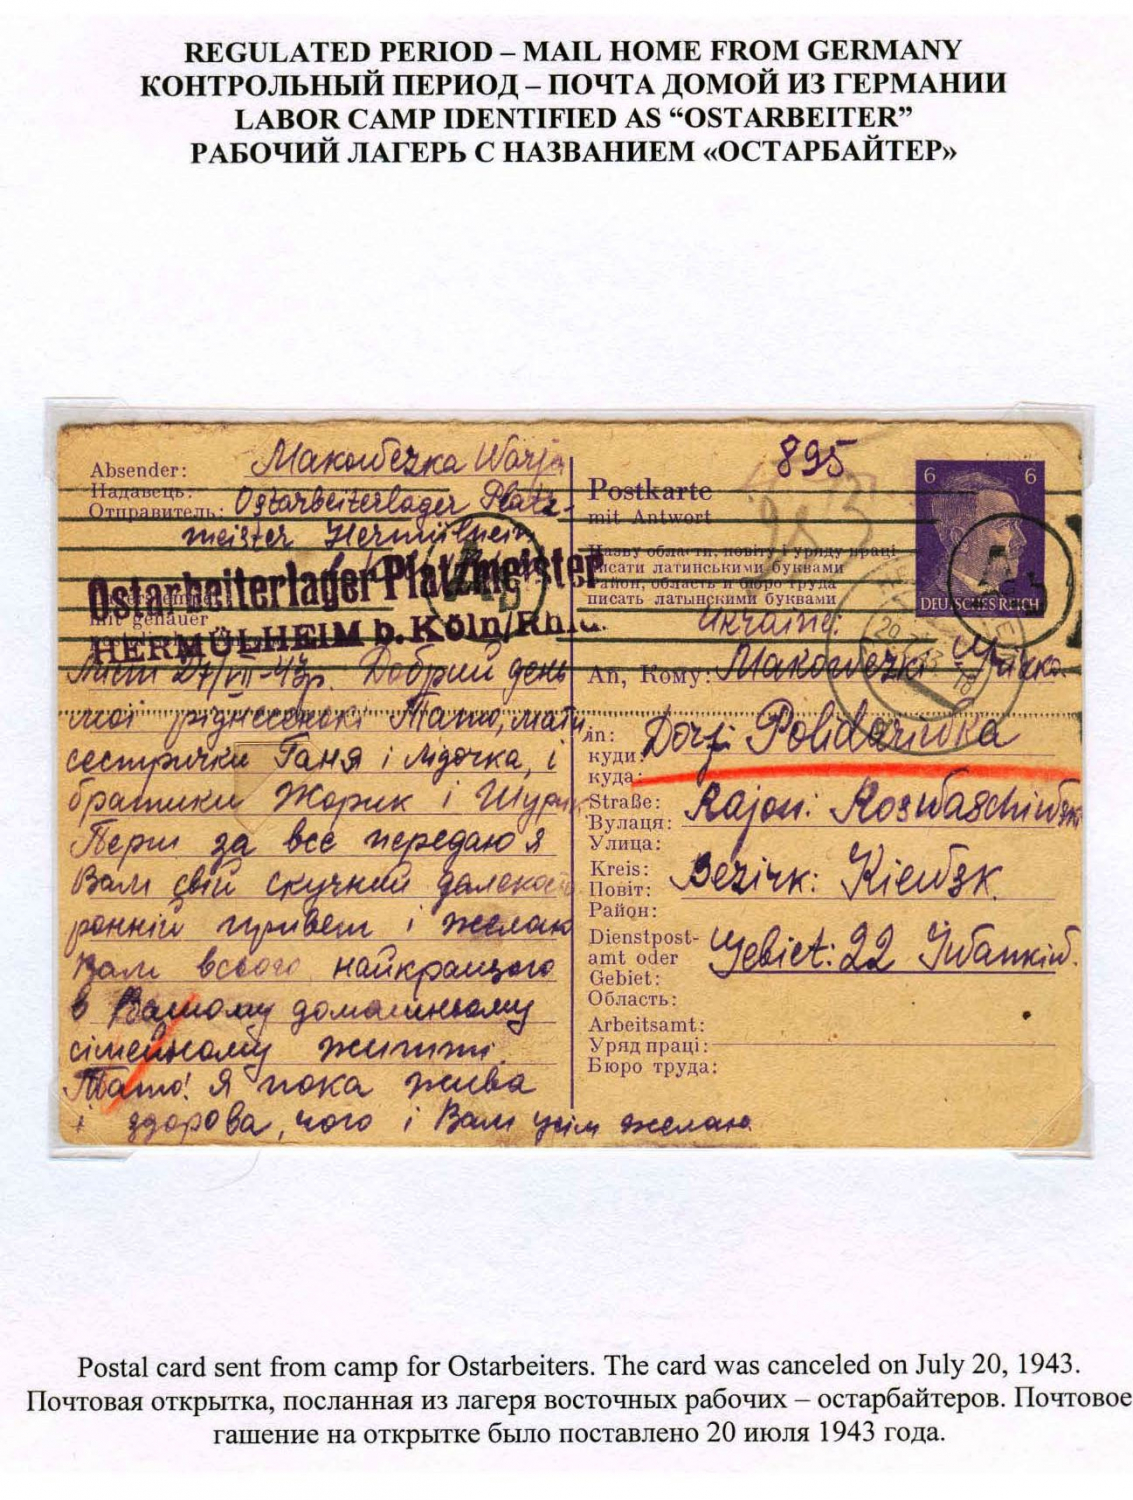 REGULATED PERIOD – MAIL HOME FROM GERMANY
КОНТРОЛЬНЫЙ ПЕРИОД – ПОЧТА ДОМОЙ ИЗ ГЕРМАНИИ
LABOR CAMP IDENTIFIED AS “OSTARBEITER”
РАБОЧИЙ ЛАГЕРЬ С НАЗВАНИЕМ «ОСТАРБАЙТЕР»
Absender: Makowezka Warja
Надавець: Ostarbeiterlager Platz-
Отправитель:
meister Hermülheim
Ostarbeiterlager Platzmeister
mit genauer
HERMÜLHEIM b. Köln/Rhld.
Лист 27/VII-43р. Добрий день
мої ріднесенькі Тато, мати,
сестрички Ганя і Лідочка, і
братики Жорик і Шурик
Перш за все передаю я
Вам свій скучний далекой
ронній привет і желаю
Вам всього найкращого
в Вашому домашньому
сімейному житті.
Тато! Я пока жива
і здорова, чого і Вам усім желаю
895
Postkarte
mit Antwort
Назву области, повіту і уряду праці
писати латинськими буквами
Район, область и бюро труда
писать латынскими буквами
6 6
DEUTSCHES REICH
Ukraine:
An, Кому: Makowezki
in: Dorf: Polidariwka
куди:
куда:
Straße: Rajon: Roswaschiwsk
Вулаця:
Улица:
Kreis: Bezirk: Kiewsk.
Повіт:
Район:
Dienstpost- Gebiet: 22 Iwankiw.
amt oder
Gebiet:
Область:
Arbeitsamt:
Уряд праці:
Бюро труда:
Postal card sent from camp for Ostarbeiters. The card was canceled on July 20, 1943.
Почтовая открытка, посланная из лагеря восточных рабочих – остарбайтеров. Почтовое
гашение на открытке было поставлено 20 июля 1943 года.